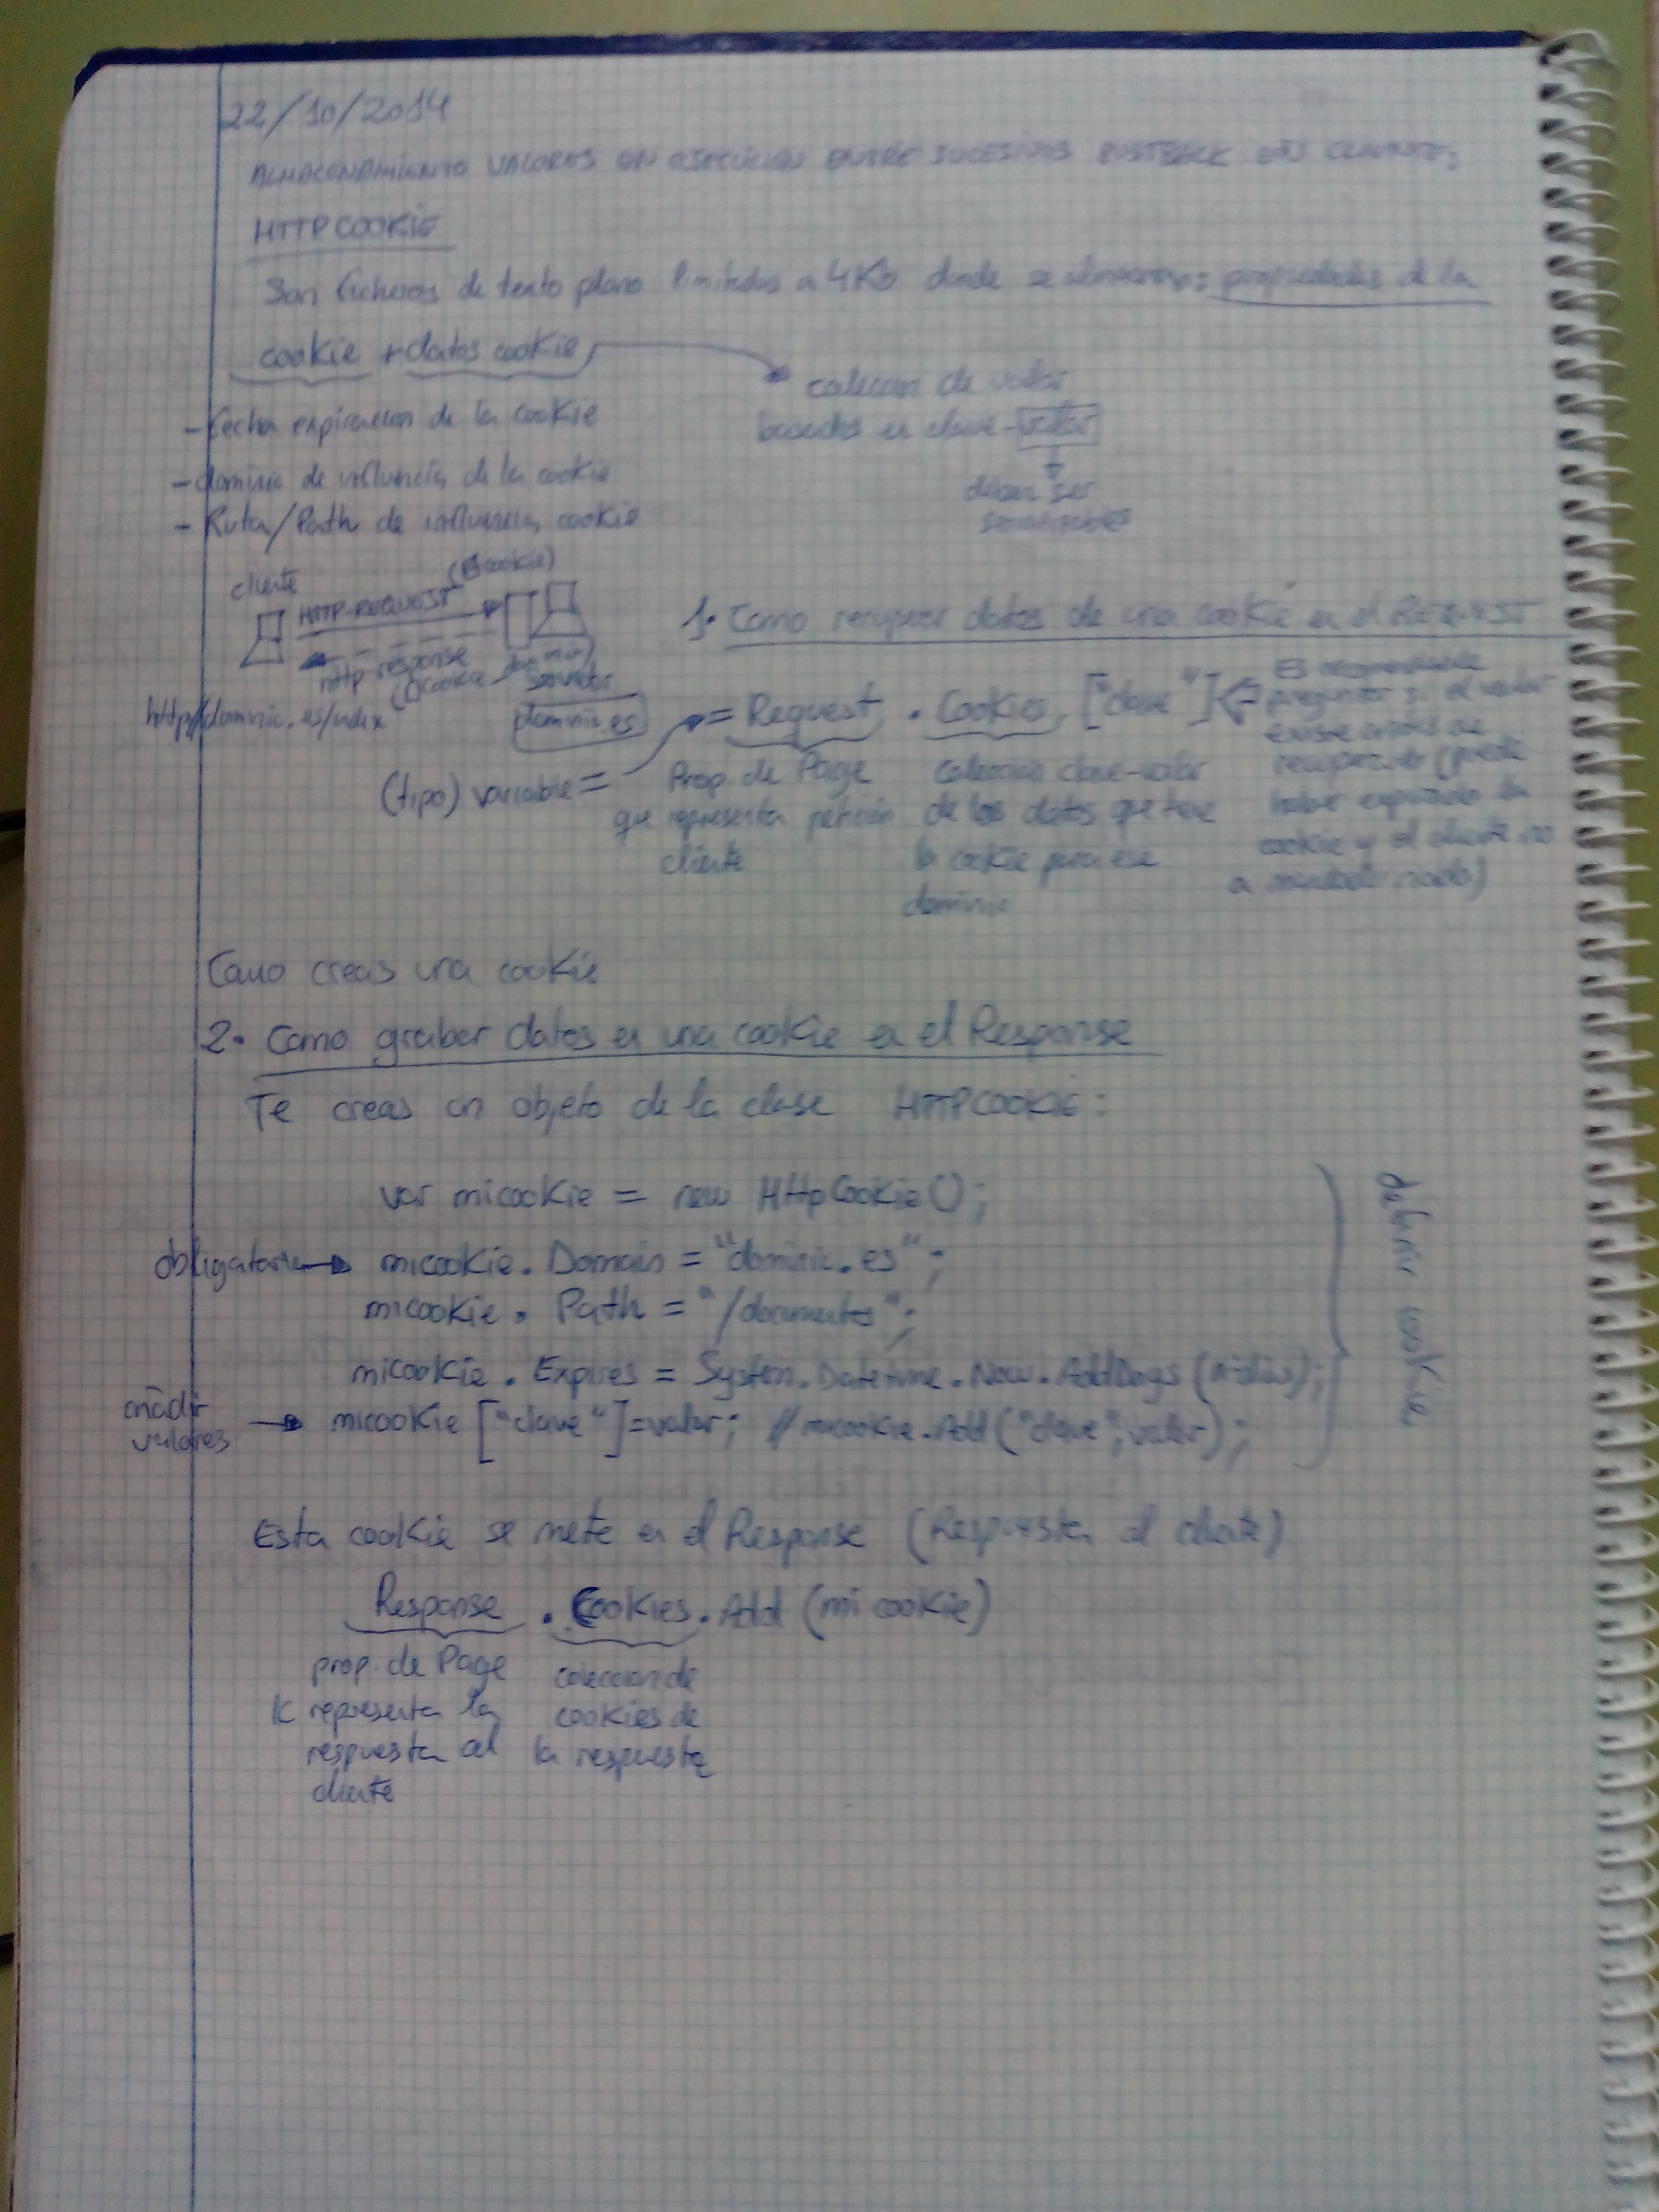 22/10/2014
ALMACENAMIENTO VALORES EN EJECUCION ENTRE SUCESIVOS POSTBACK EN CLIENTE:
HTTPCOOKIE
Son ficheros de texto plano limitados a 4Kb donde se almacenan: propiedades de la
cookie + datos cookie
coleccion de valor
basados en clave-valor
deben ser
serializables
- fecha expiracion de la cookie
- dominio de influencia de la cookie
- Ruta/Path de influencia cookie
cliente
HTTP-REQUEST (cookie)
http-response
(cookie dominio)
servidor
http//dominio.es/index
dominio.es
1. Como recuperar datos de una cookie en el REQUEST
(tipo) variable =
= Request . Cookies ["clave"]
Prop. de Page
que representa petición
cliente
coleccion clave-valor
de los datos que tiene
la cookie para ese
dominio
Es recomendable
preguntar si el valor
existe antes de
recuperarlo (puede
haber expirado la
cookie y el cliente no
a mandado nada)
Como creas una cookie
2. Como grabar datos en una cookie en el Response
Te creas un objeto de la clase HTTPCOOKIE:
var micookie = new HttpCookie();
obligatorio
micookie. Domain = "dominio.es";
micookie. Path = "/documentos";
micookie. Expires = System.Datetime.Now.AddDays(nºdias);
añadir
valores
micookie ["clave"]=valor; // micookie.Add("clave", valor);
definir cookie
Esta cookie se mete en el Response (Respuesta al cliente)
Response . Cookies. Add (micookie)
prop. de Page
k representa la
respuesta al
cliente
coleccion de
cookies de
la respuesta